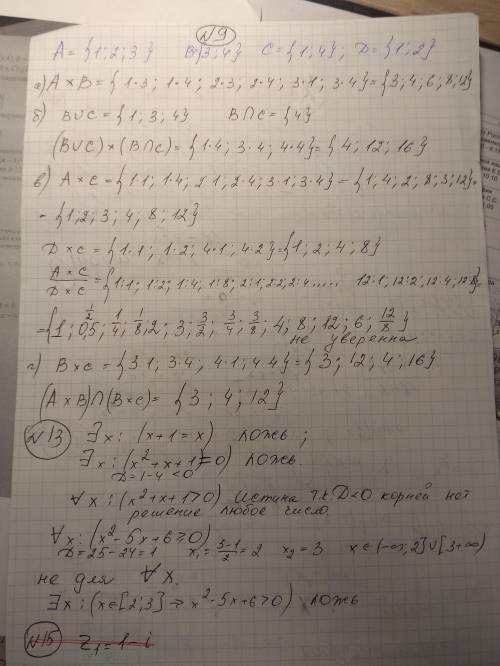 №9
A = {1; 2; 3} B{3; 4} C = {1; 4}; D = {1; 2}
а) A × B = {1·3; 1·4; 2·3; 2·4; 3·1; 3·4} = {3; 4; 6; 8; 12}
б) B∪C = {1; 3; 4} B∩C = {4}
(B∪C)×(B∩C) = {1·4; 3·4; 4·4} = {4; 12; 16}
в) A × C = {1·1; 1·4; 2·1; 2·4; 3·1; 3·4} = {1; 4; 2; 8; 3; 12} =
= {1; 2; 3; 4, 8; 12}
D × C = {1·1; 1·2; 4·1; 4·2} = {1; 2; 4; 8}
A × C / D × C = {1:1; 1:2; 1:4; 1:8; 2:1; 2:2; 2:4 ..... 12:1; 12:2; 12:4; 12:8} =
= {1; 0,5; 1/2 1/4; 1/8; 2; 3; 3/2; 3/4; 3/8; 4; 8; 12; 6; 12/8}
не уверенна
г) B × C = {3·1; 3·4; 4·1; 4·4} = {3; 12; 4; 16}
(A × B)∩(B × C) = {3; 4; 12}
№13 ∃x: (x+1=x) ложь;
∃x: (x²+x+1=0) ложь.
D=1-4<0
∀x: (x²+x+1>0) Истина т.к D<0 корней нет
решение любое число.
∀x: (x²-5x+6≥0)
D=25-24=1 x₁=5-1/2=2 x₂=3 x∈(-∞;2]∪[3+∞)
не для ∀x.
∃x: (x∈[2;3] → x²-5x+6>0) ложь
№15 z₁=1-i